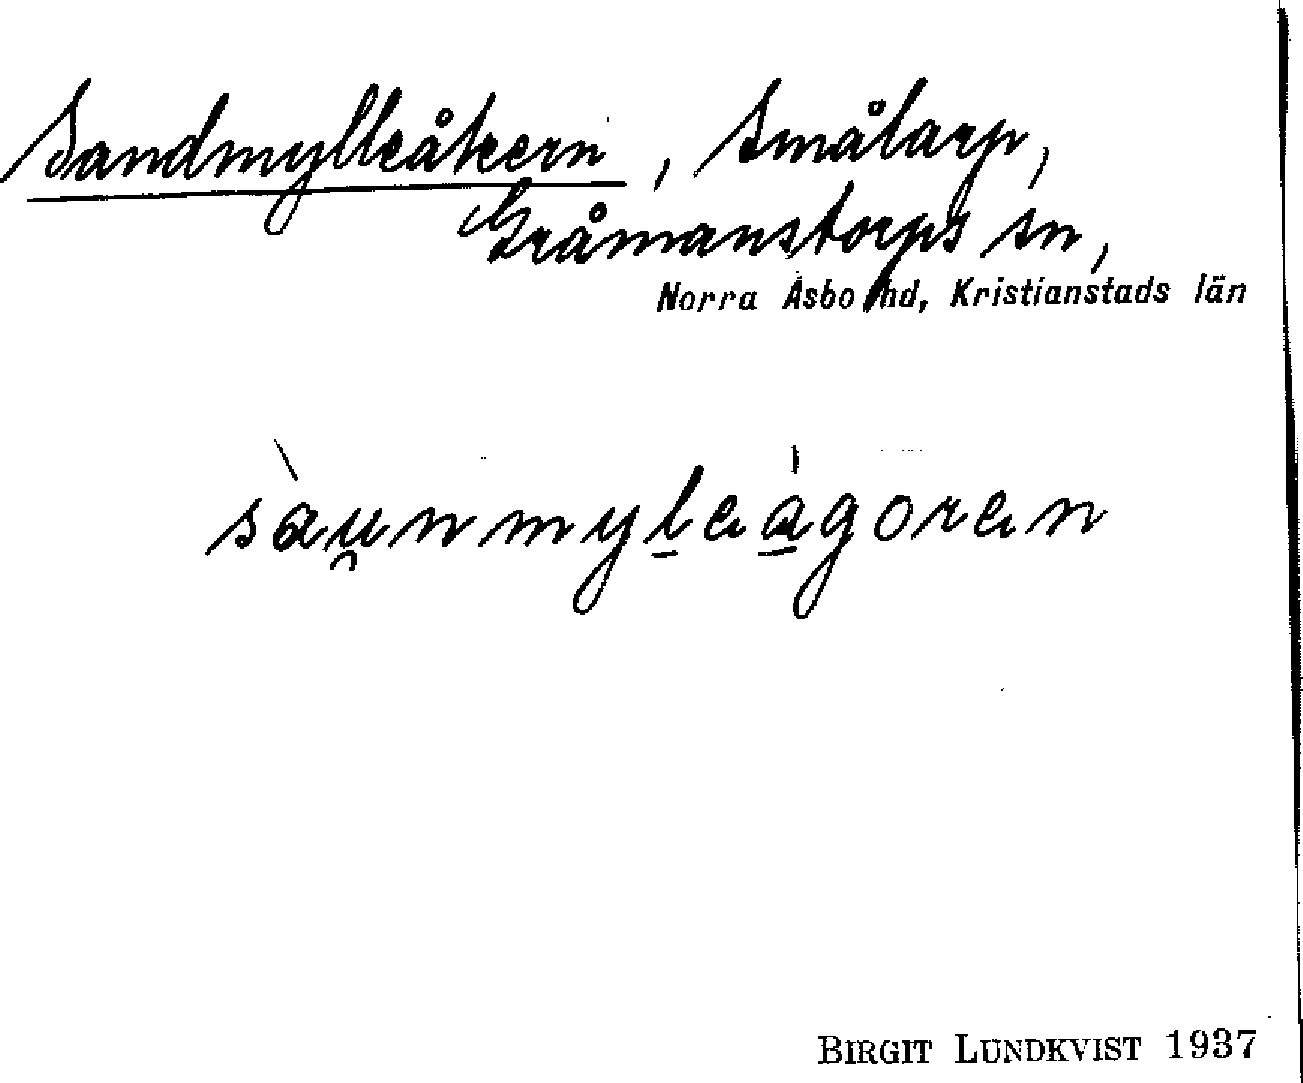 Sandmylleåkern, Smålarp,
Gråmanstorps sn,
Norra Åsbo hd, Kristianstads län
sàu̯nmyleágoren
BIRGIT LUNDKVIST 1937